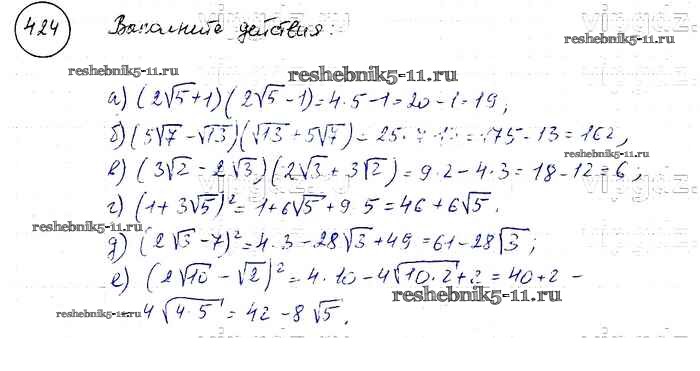 424 Выполните действия:
reshebnik5-11.ru reshebnik5-11.ru
а) (2√5+1)(2√5-1)=4·5-1=20-1=19;
б) (5√7-√13)(√13+5√7)=25·7-13=175-13=162,
в) (3√2-2√3)(2√3+3√2)=9·2-4·3=18-12=6;
г) (1+3√5)²=1+6√5+9·5=46+6√5.
reshebnik5-11.ru
д) (2√3-7)²=4·3-28√3+49=61-28√3;
е) (2√10-√2)²=4·10-4√10·2+2=40+2-
reshebnik5-11.ru
-4√4·5=42-8√5.
reshebnik5-11.ru